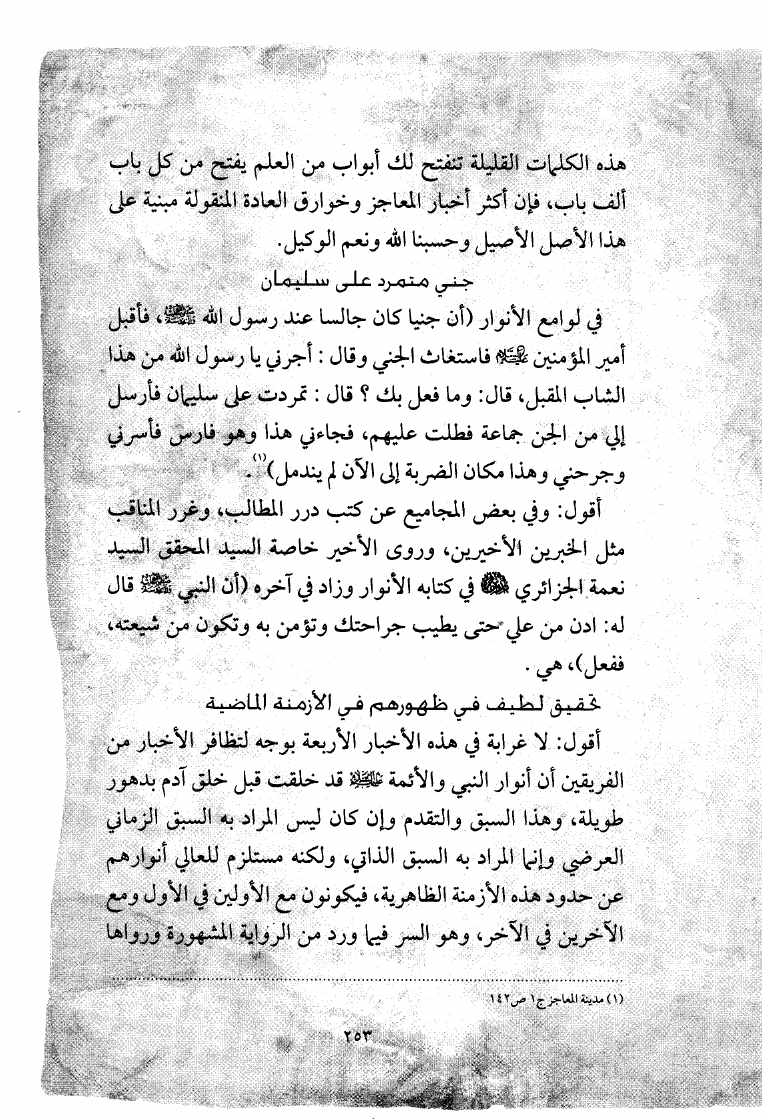 هذه الكلمات القليلة تنفتح لك أبواب من العلم يفتح من كل باب
ألف باب، فإن أكثر أخبار المعاجز وخوارق العادة المنقولة مبنية على
هذا الأصل الأصيل وحسبنا الله ونعم الوكيل.
جني متمرد على سليمان
في لوامع الأنوار (أن جنيا كان جالسا عند رسول الله ﷺ، فأقبل
أمير المؤمنين فاستغاث الجني وقال : أجرني يا رسول الله من هذا
الشاب المقبل، قال: وما فعل بك ؟ قال : تمردت على سليمان فأرسل
إلي من الجن جماعة فطلت عليهم، فجاءني هذا وهو فارس فأسرني
وجرحني وهذا مكان الضربة إلى الآن لم يندمل)(١).
أقول: وفي بعض المجاميع عن كتب درر المطالب، وغرر المناقب
مثل الخبرين الأخيرين، وروى الأخير خاصة السيد المحقق السيد
نعمة الجزائري في كتابه الأنوار وزاد في آخره (أن النبي ﷺ قال
له: ادن من علي حتى يطيب جراحتك وتؤمن به وتكون من شيعته،
ففعل)، هي .
تحقيق لطيف في ظهورهم في الأزمنة الماضية
أقول: لا غرابة في هذه الأخبار الأربعة بوجه لتظافر الأخبار من
الفريقين أن أنوار النبي والأئمة قد خلقت قبل خلق آدم بدهور
طويلة، وهذا السبق والتقدم وإن كان ليس المراد به السبق الزماني
العرضي وإنما المراد به السبق الذاتي، ولكنه مستلزم للعالي أنوارهم
عن حدود هذه الأزمنة الظاهرية، فيكونون مع الأولين في الأول ومع
الآخرين في الآخر، وهو السر فيما ورد من الرواية المشهورة ورواها
(١) مدينة المعاجز ج١ ص١٤٢
٢٥٣